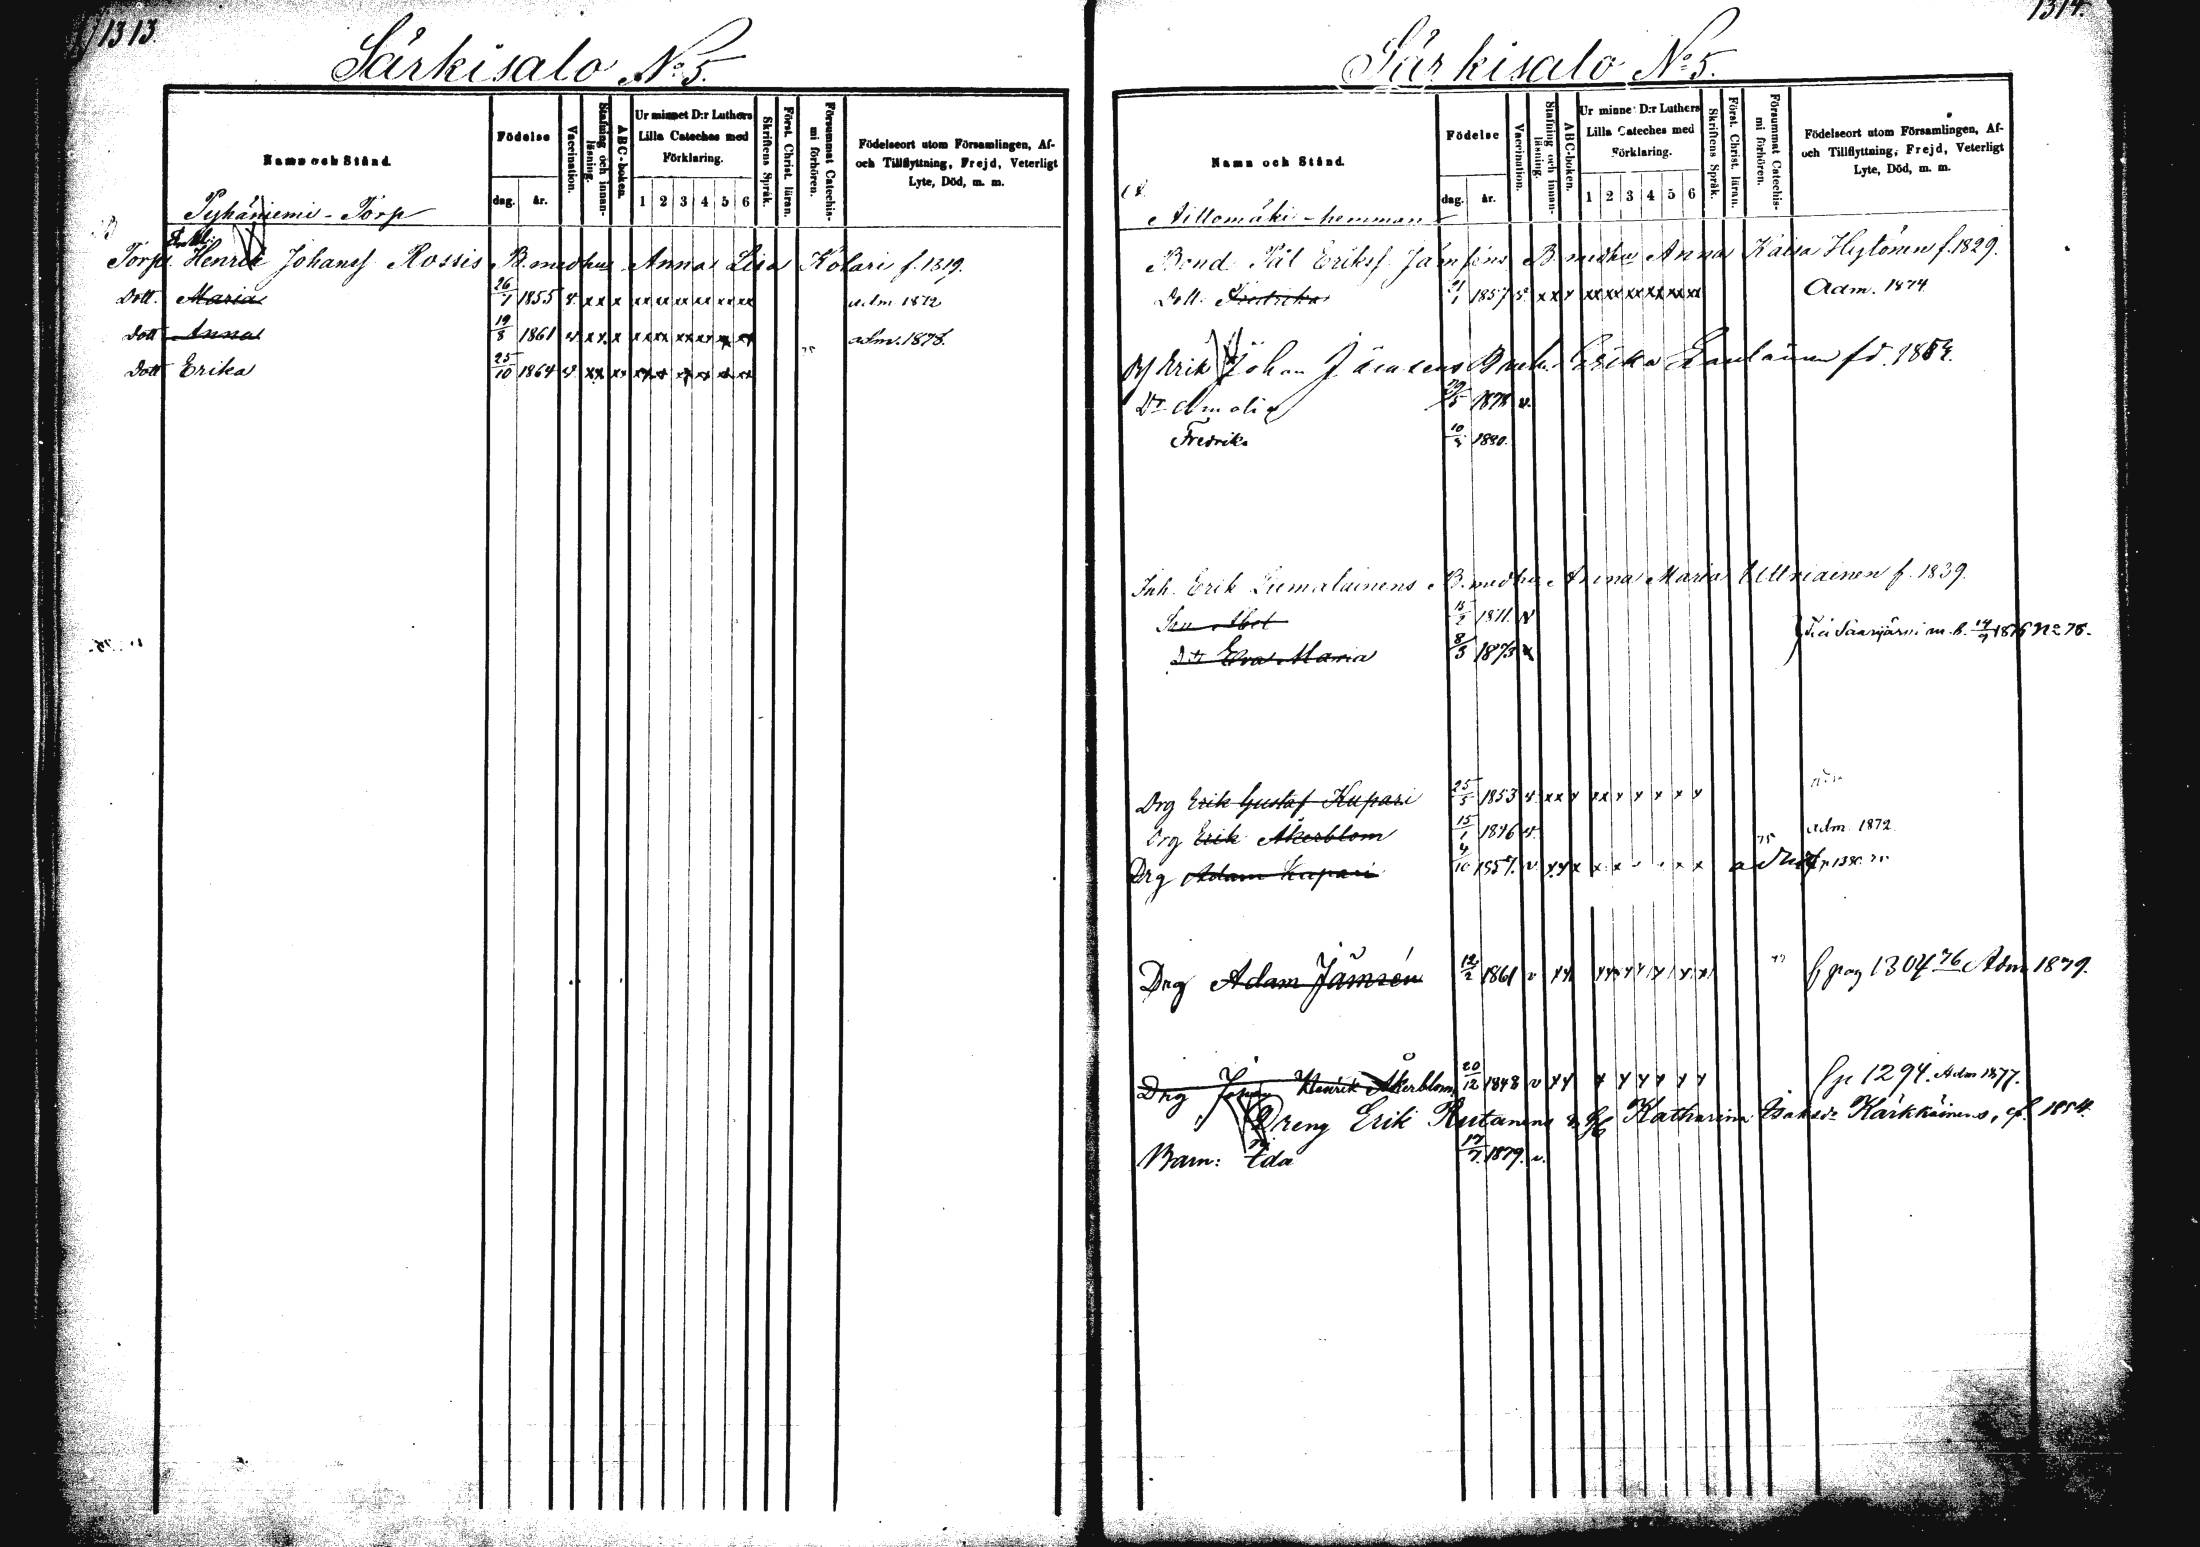 1313
Särkisalo No 5.
Namn och Stånd.
Födelse
dag. år.
Vaccination.
Stafning och innanläsning.
ABC-boken.
Ur minnet D:r Luthers Lilla Cateches med Förklaring.
1 2 3 4 5 6
Skriftens Språk.
Först. Christ. läran.
Försummat Catechismi förhören.
Födelseort utom Församlingen, Af- och Tillflyttning, Frejd, Veterligt Lyte, Död, m. m.
Pyhäniemi - Torp
Torp. Henrik Johansf Rossis B. med hu Anna Lisa Kolari f. 1819.
Dott. Maria 26/7 1855 v. xx x xx xx xx xx xx xx adm 1872
Dott Anna 19/8 1861 v xx x xx xx xx xx xx xx adm. 1878.
Dott Erika 25/10 1864 v xx xx xx xx xx xx xx
1314.
Särkisalo No 5.
Namn och Stånd.
Födelse
dag. år.
Vaccination.
Stafning och innanläsning.
ABC-boken.
Ur minnet D:r Luthers Lilla Cateches med Förklaring.
1 2 3 4 5 6
Skriftens Språk.
Först. Christ. läran.
Försummat Catechismi förhören.
Födelseort utom Församlingen, Af- och Tillflyttning, Frejd, Veterligt Lyte, Död, m. m.
Aittomäki - hemman
Bond. Pål Eriksf Jämséns B. med hu Anna Kaisa Hytönen f. 1829.
Dott. Fredrika 21/1 1857 v. xx x xx xx xx xx xx xx Adm. 1874
Erik Johan Jämsens B med h. Erika Lautainen fd. 1854.
Dr Amalia 29/5 1878 v.
Fredrika 1880.
Inh. Erik Liimatainens B. med hu Anna Maria Uttriainen f. 1839.
Son Abel 1871. v
Dtr Eva Maria 8/3 1873 v
Saarijärvi m. b. 1876 No 78.
Drg Erik Gustaf Kupari 25/5 1853 v. xx x xx x x x x x
Drg Erik Åkerblom 15/1 1846 v. 75 adm. 1872
Drg Adam Kupari 4/10 1857. v
Drg Adam Jämsén 12/2 1861 v xx 77 fr pag 1304 76 Adm 1879.
Drg Johan Henrik Åkerblom 20/12 1848 v xx x x x x x x fr p 1294. Adm 1877.
Dreng Erik Rutanens & h Katharina Isaksdr Kärkkäinens, f. 1854.
Barn: Ida 17/7. 1879. v.